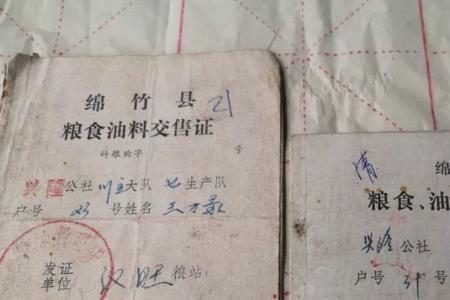 绵竹县 21
粮食油料交售证
号
兴隆公社川主大队七生产队
户号 号姓名王
发证
单位 汉旺粮站
清 绵
粮食、油
兴隆公社
户号